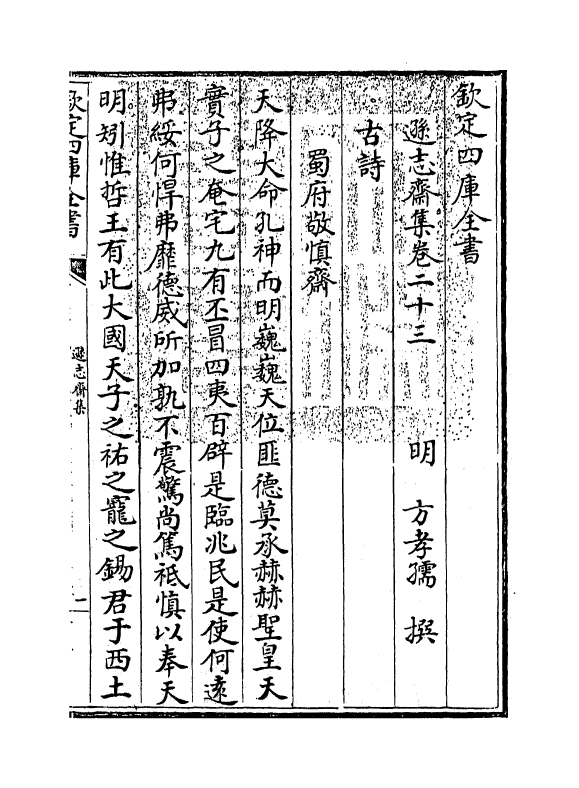 欽定四庫全書
遜志齋集卷二十三　明　方孝孺　撰
古詩
蜀府敬慎齋
天降大命孔神而明巍巍天位匪德莫承赫赫聖皇天
實子之奄宅九有丕冒四夷百辟是臨兆民是使何遠
弗綏何悍弗靡德威所加孰不震驚尚篤祗慎以奉天
明矧惟哲王有此大國天子之祐之寵之錫君于西土
欽定四庫全書
遜志齋集
一